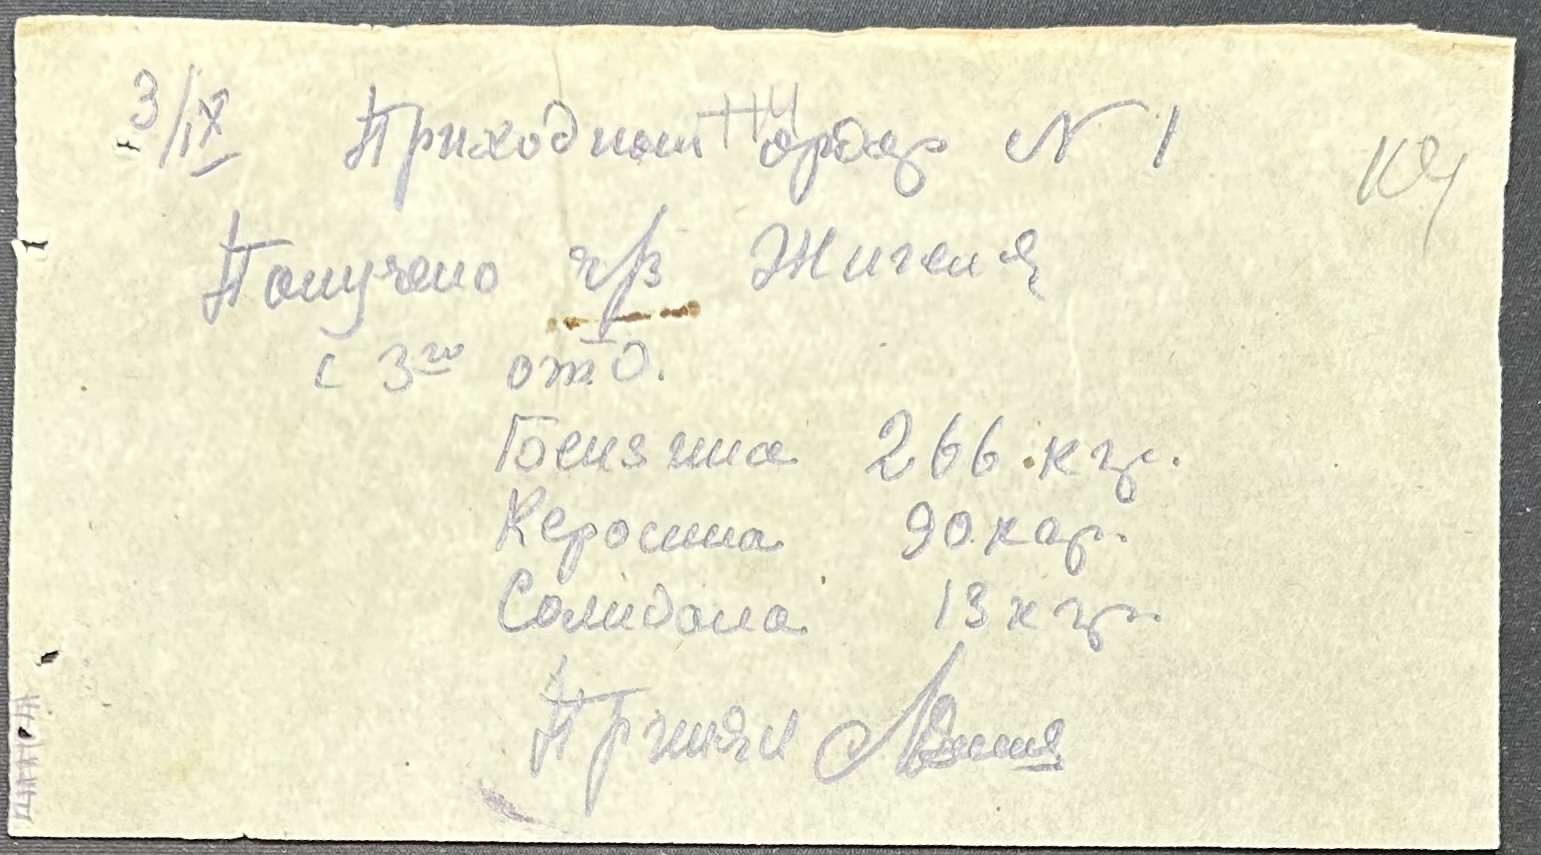 3/IX Приходный ордер N 1
Получено ч/з Жигеля
с 3го отд.
Бензина 266 кгр.
Керосина 90 кгр.
Солидола 13 кгр.
Принял